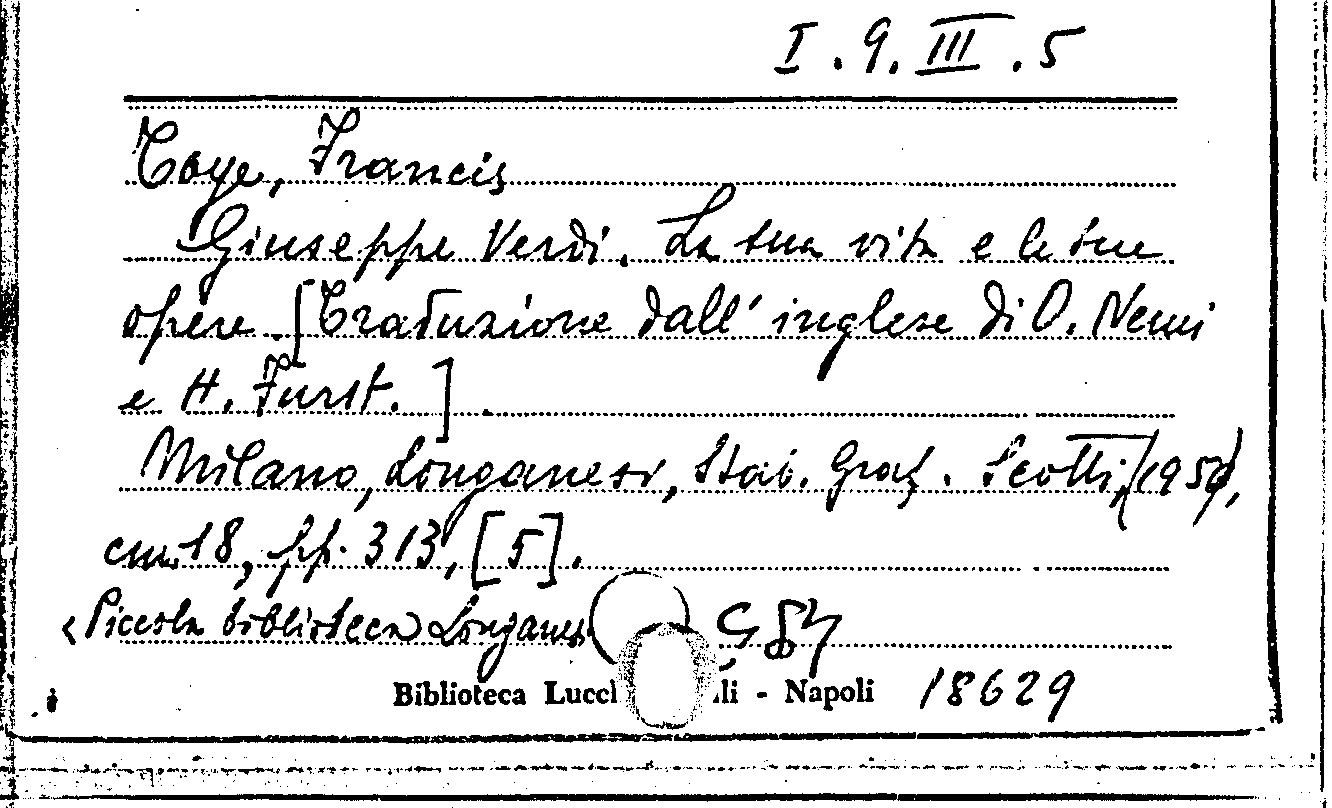 I.9.III.5
Toye, Francis
Giuseppe Verdi. La sua vita e le sue
opere. [Traduzione dall'inglese di O. Nemi
e H. Furst.].
Milano, Longanesi, Stab. Graf. Scotti, (1950),
cm. 18, pp. 313, [5].
«Piccola biblioteca Longanesi
Biblioteca Lucchesi Palli - Napoli 18629